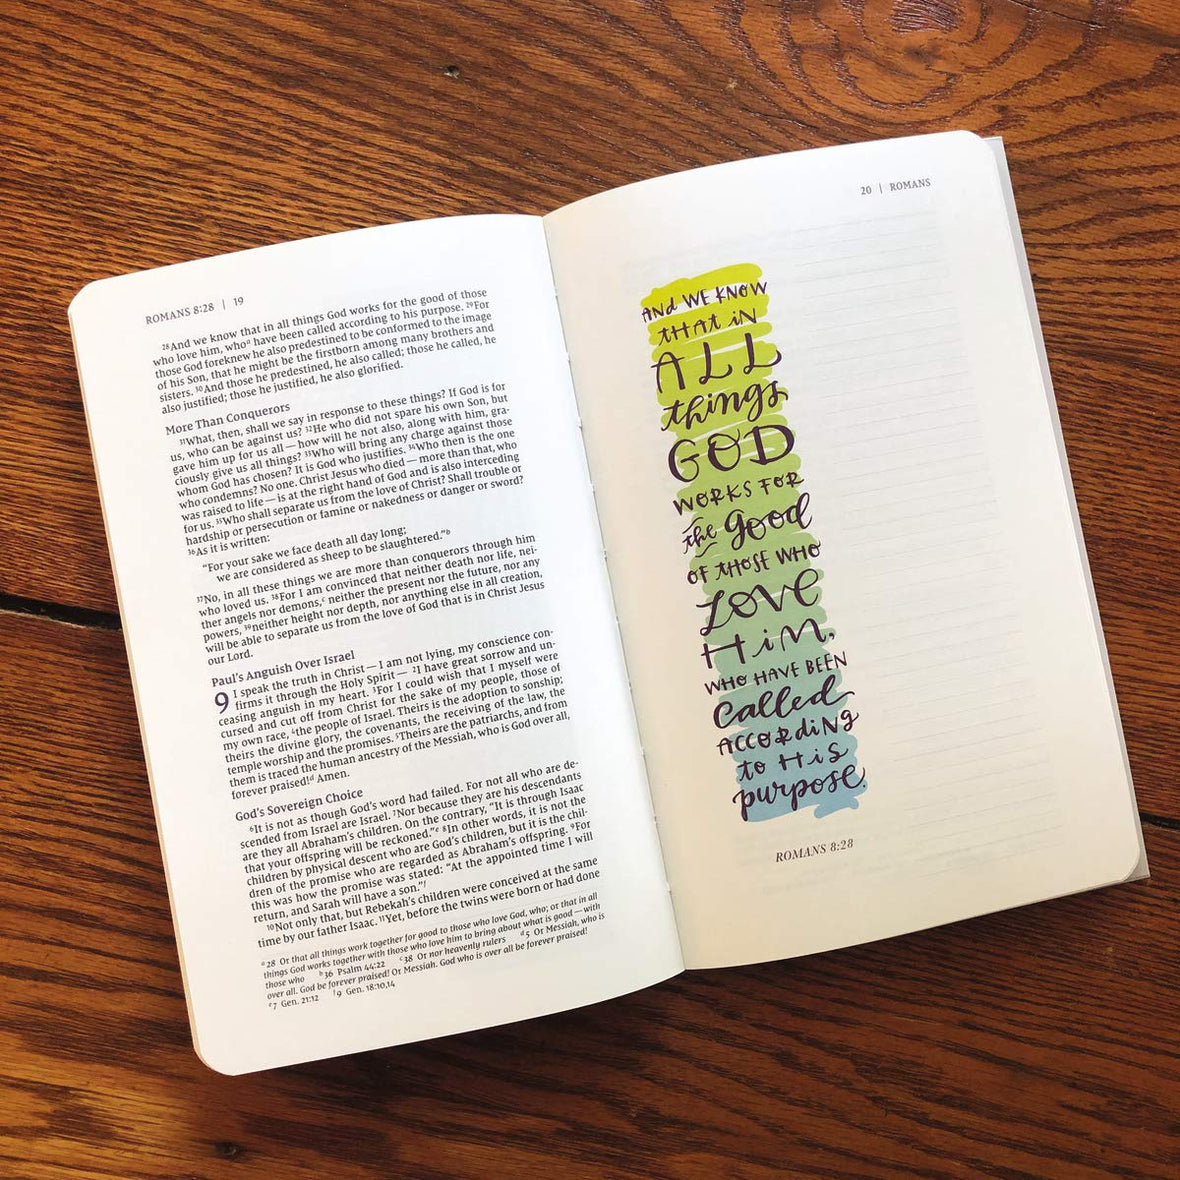 ROMANS 8:28 | 19
²⁸And we know that in all things God works for the good of those
who love him, whoᵃ have been called according to his purpose. ²⁹For
those God foreknew he also predestined to be conformed to the image
of his Son, that he might be the firstborn among many brothers and
sisters. ³⁰And those he predestined, he also called; those he called, he
also justified; those he justified, he also glorified.
More Than Conquerors
³¹What, then, shall we say in response to these things? If God is for
us, who can be against us? ³²He who did not spare his own Son, but
gave him up for us all — how will he not also, along with him, gra-
ciously give us all things? ³³Who will bring any charge against those
whom God has chosen? It is God who justifies. ³⁴Who then is the one
who condemns? No one. Christ Jesus who died — more than that, who
was raised to life — is at the right hand of God and is also interceding
for us. ³⁵Who shall separate us from the love of Christ? Shall trouble or
hardship or persecution or famine or nakedness or danger or sword?
³⁶As it is written:
“For your sake we face death all day long;
we are considered as sheep to be slaughtered.”ᵇ
³⁷No, in all these things we are more than conquerors through him
who loved us. ³⁸For I am convinced that neither death nor life, nei-
ther angels nor demons,ᶜ neither the present nor the future, nor any
powers, ³⁹neither height nor depth, nor anything else in all creation,
will be able to separate us from the love of God that is in Christ Jesus
our Lord.
Paul’s Anguish Over Israel
9 I speak the truth in Christ — I am not lying, my conscience con-
firms it through the Holy Spirit — ²I have great sorrow and un-
ceasing anguish in my heart. ³For I could wish that I myself were
cursed and cut off from Christ for the sake of my people, those of
my own race, ⁴the people of Israel. Theirs is the adoption to sonship;
theirs the divine glory, the covenants, the receiving of the law, the
temple worship and the promises. ⁵Theirs are the patriarchs, and from
them is traced the human ancestry of the Messiah, who is God over all,
forever praised!ᵈ Amen.
God’s Sovereign Choice
⁶It is not as though God’s word had failed. For not all who are de-
scended from Israel are Israel. ⁷Nor because they are his descendants
are they all Abraham’s children. On the contrary, “It is through Isaac
that your offspring will be reckoned.”ᵉ ⁸In other words, it is not the
children by physical descent who are God’s children, but it is the chil-
dren of the promise who are regarded as Abraham’s offspring. ⁹For
this was how the promise was stated: “At the appointed time I will
return, and Sarah will have a son.”ᶠ
¹⁰Not only that, but Rebekah’s children were conceived at the same
time by our father Isaac. ¹¹Yet, before the twins were born or had done
ᵃ 28 Or that all things work together for good to those who love God, who; or that in all
things God works together with those who love him to bring about what is good — with
those who ᵇ 36 Psalm 44:22 ᶜ 38 Or nor heavenly rulers ᵈ 5 Or Messiah, who is
over all. God be forever praised! Or Messiah. God who is over all be forever praised!
ᵉ 7 Gen. 21:12 ᶠ 9 Gen. 18:10,14
20 | ROMANS
AND WE KNOW
THAT iN
ALL
things
GOD
WORKS FOR
the good
OF THOSE WHO
LOVE
HiM,
WHO HAVE BEEN
Called
ACCORDiNG
to His
purpose.
ROMANS 8:28